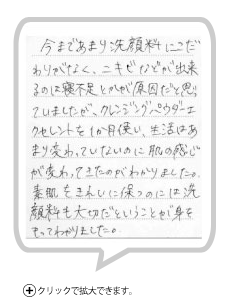 今まであまり洗顔料にこだ
わりがなく、ニキビなどが出来
るのは寝不足とかが原因だと思っ
ていましたが、クレンジングパウダーエ
クセレントを1か月使い、生活はあ
まり変わっていないのに肌の感じ
が変わってきたのがわかりました。
素肌をきれいに保つのには洗
顔料も大切だということが身を
もってわかりました。
クリックで拡大できます。